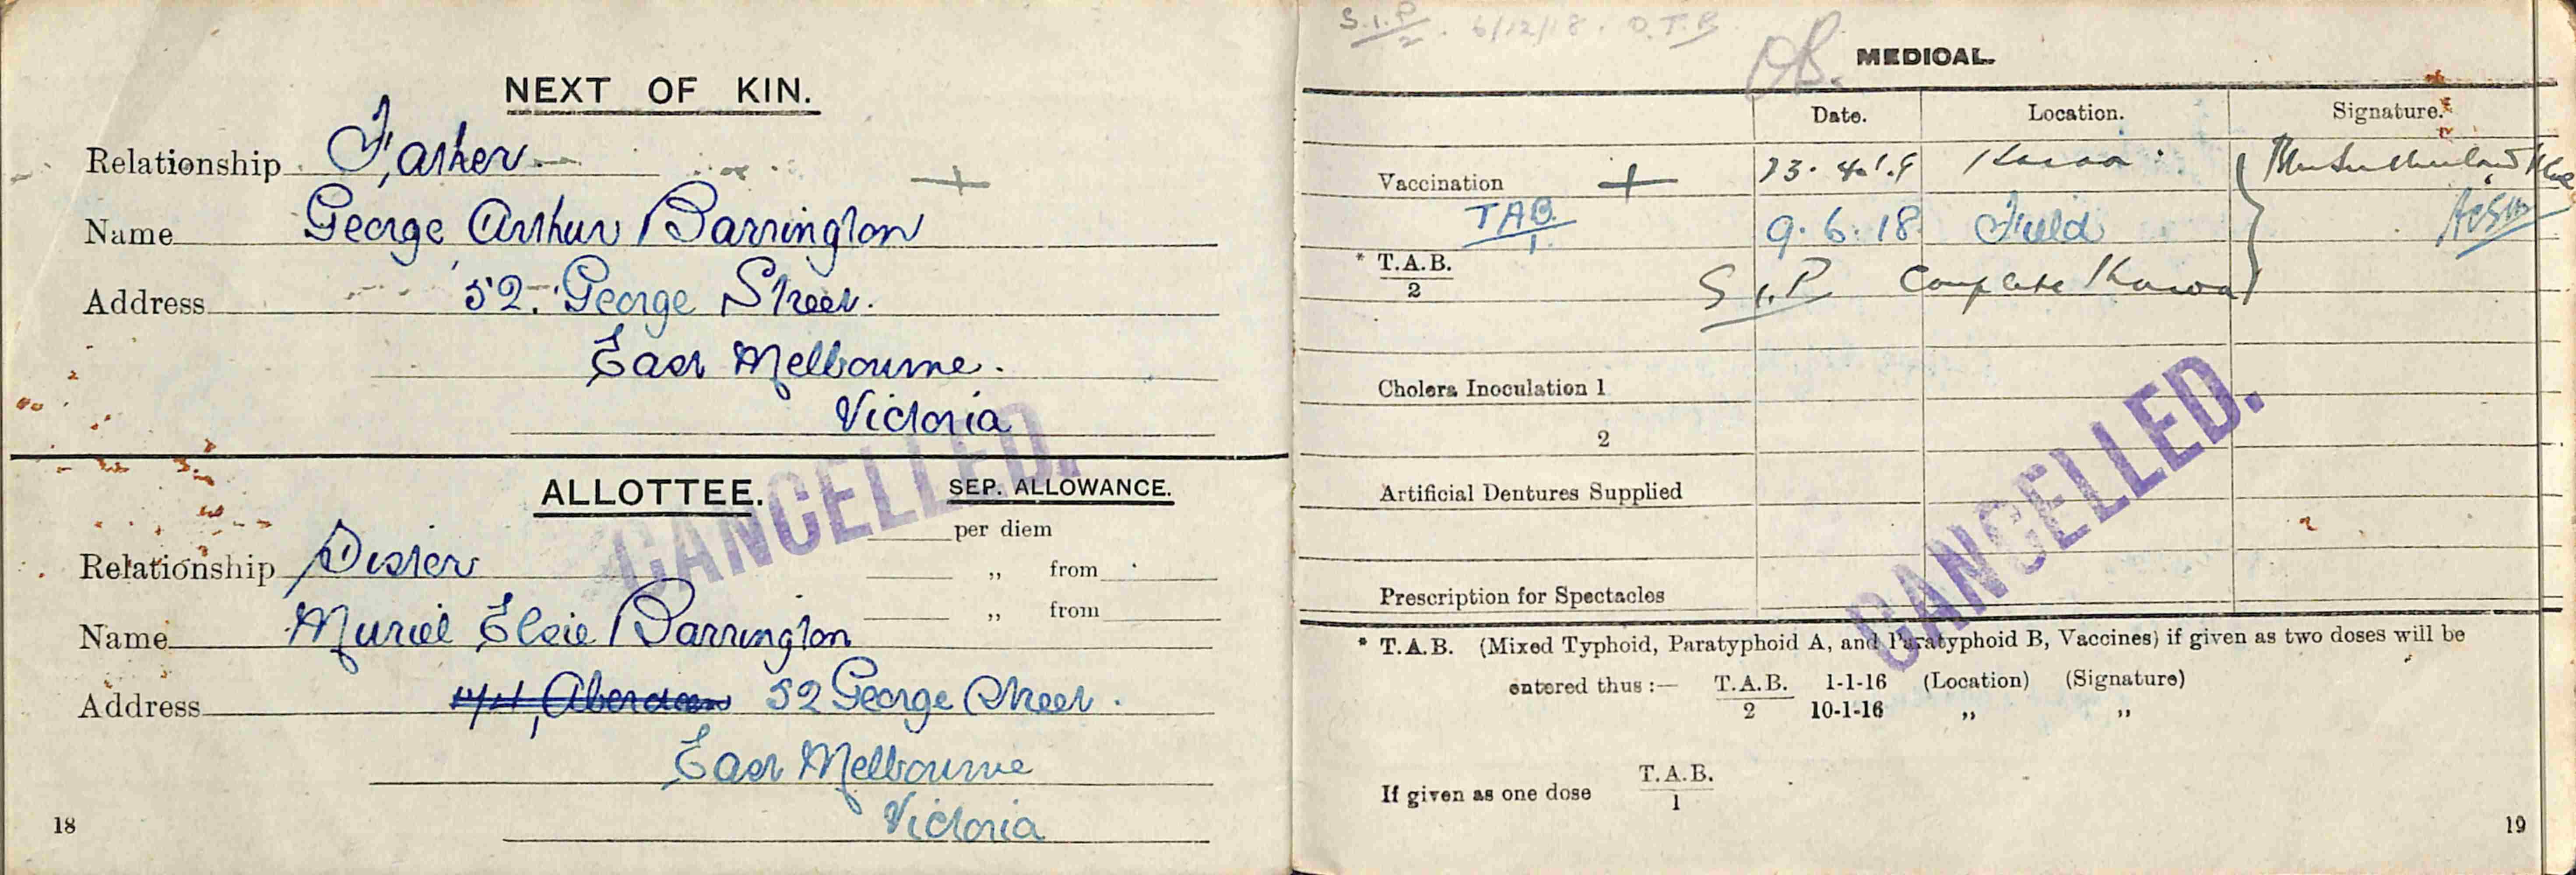 NEXT OF KIN.
Relationship Father
Name George Arthur Barrington
Address 52. George Street.
East Melbourne.
Victoria
CANCELLED.
ALLOTTEE.
SEP. ALLOWANCE.
per diem
Relationship Sister
„ from
„ from
Name Muriel Elsie Barrington
Address Aberdeen 52 George Street.
East Melbourne
Victoria
18
S.I.P/2 . 6/12/18 . O.T.B
MEDICAL.
Date. Location. Signature.
Vaccination + 23.4.19
TAB/1 9.6.18 Field
* T.A.B./2 S.I.P Complete
Cholera Inoculation 1
2
Artificial Dentures Supplied
CANCELLED.
Prescription for Spectacles
* T.A.B. (Mixed Typhoid, Paratyphoid A, and Paratyphoid B, Vaccines) if given as two doses will be
entered thus :— T.A.B./2 1-1-16 (Location) (Signature)
10-1-16 „ „
If given as one dose T.A.B./1
19